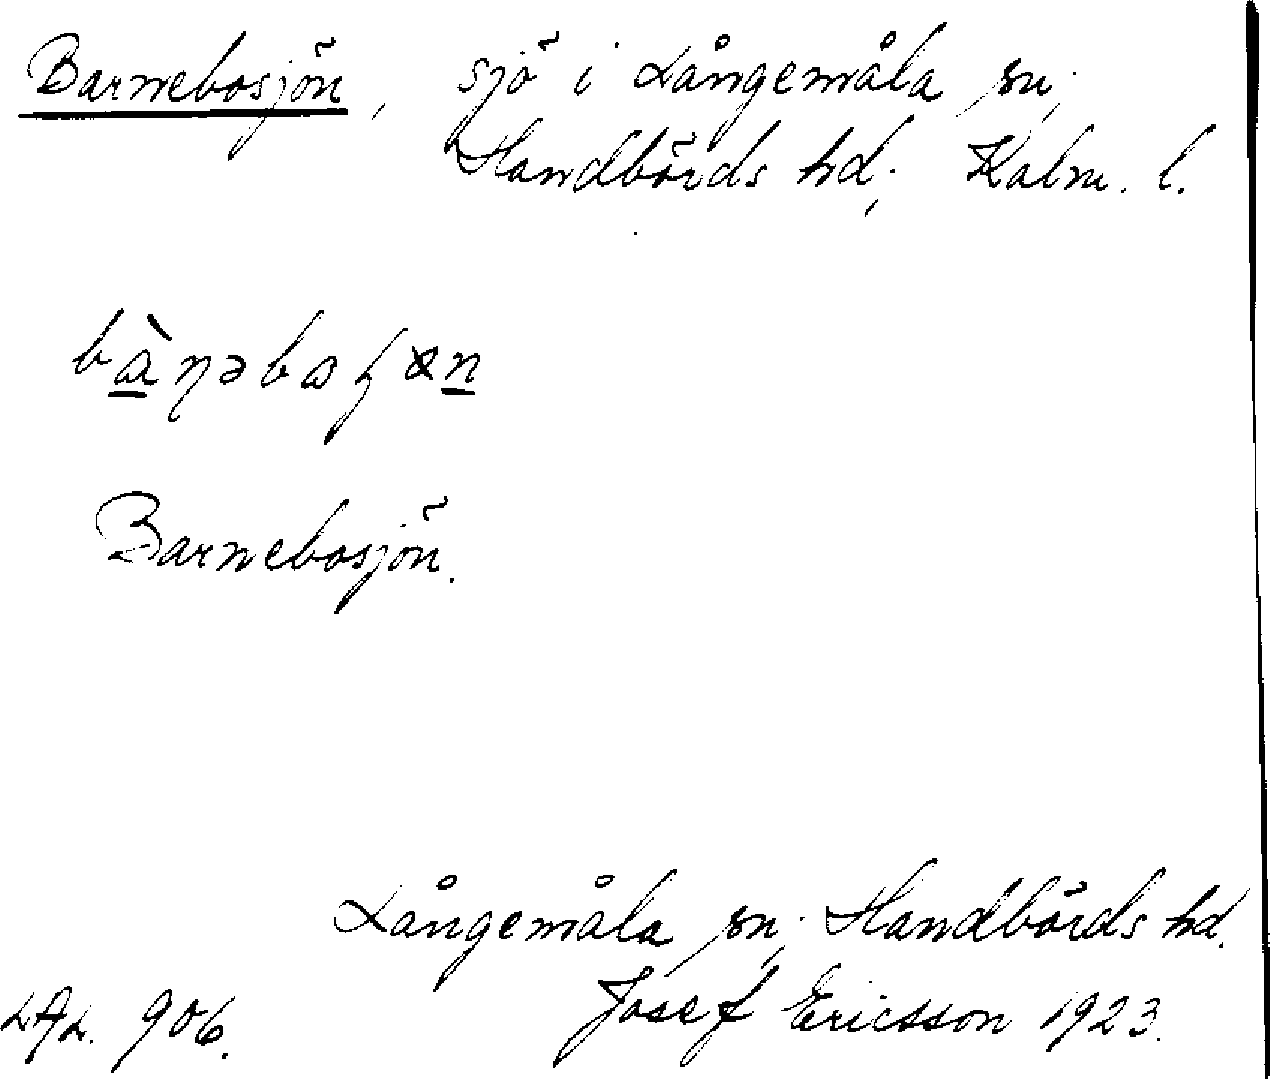 Barnebosjön, sjö i Långemåla sn,
Handbörds hd, Kalm. l.
Barnebosjön.
Långemåla sn, Handbörds hd.
LAL. 906. Josef Ericsson 1923.